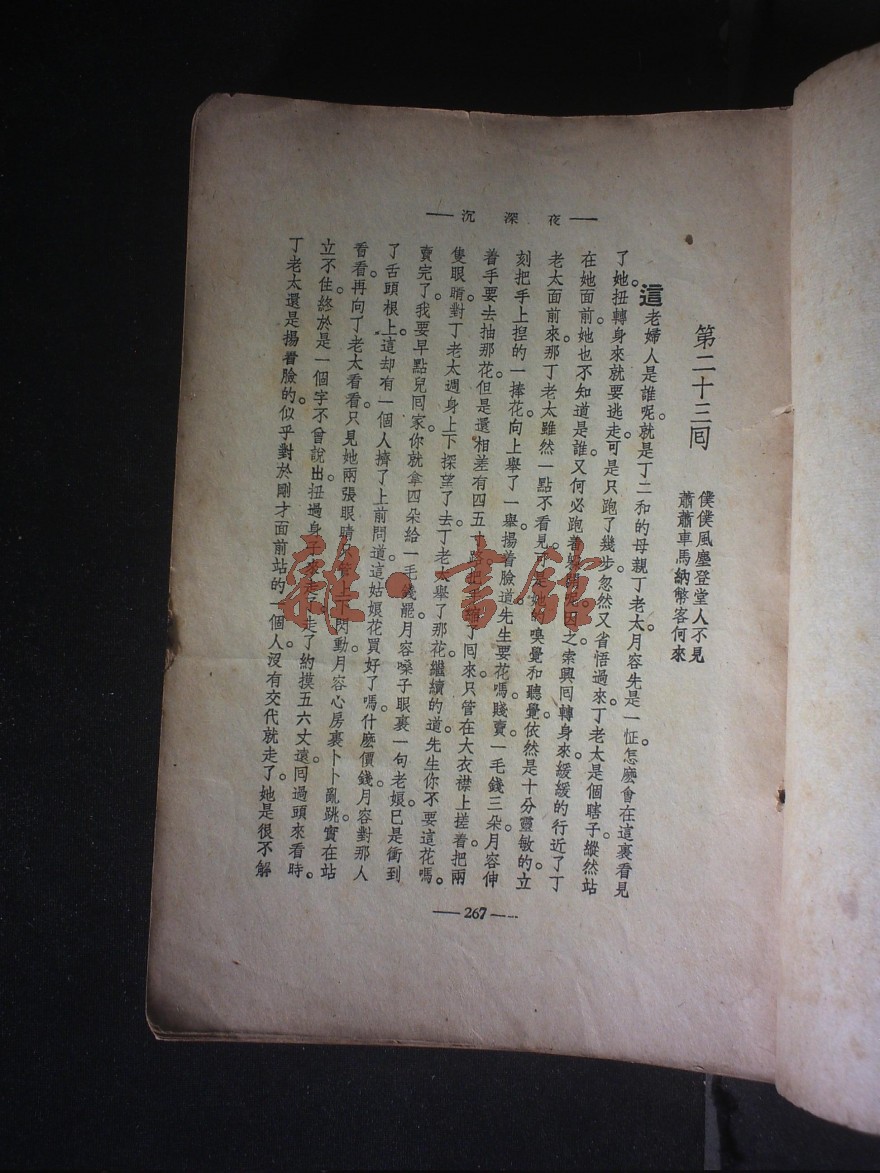 夜深沉
第二十三囘
僕僕風塵登堂人不見
蕭蕭車馬納幣客何來
這老婦人是誰呢。就是丁二和的母親丁老太。月容先是一怔。怎麽會在這裏看見
了。她扭轉身來就要逃走。可是只跑了幾步。忽然又省悟過來。丁老太是個瞎子。縱然站
在她面前。她也不知道是誰。又何必跑着躲開。因之索興囘轉身來。緩緩的行近了丁
老太面前來。那丁老太雖然一點不看見。可是她的嗅覺和聽覺。依然是十分靈敏的。立
刻把手上揑的一捧花。向上舉了一舉。揚着臉道。先生要花嗎。賤賣。一毛錢三朵。月容伸
着手要去抽那花。但是還相差有四五寸路。把手縮了囘來。只管在大衣襟上搓着。把兩
隻眼睛對丁老太週身上下探望了去。丁老太舉了那花。繼續的道。先生你不要這花嗎。
賣完了。我要早點兒囘家。你就拿四朵給一毛錢罷。月容嗓子眼裏一句老娘。已是衝到
了舌頭根上。這却有一個人擠了上前問道。這姑娘花買好了嗎。什麽價錢。月容對那人
看看。再向丁老太看看。只見她兩張眼睛只管上下閃動。月容心房裏卜卜亂跳。實在站
立不住。終於是一個字不曾說出。扭過身子來走了。走了約摸五六丈遠。囘過頭來看時。
丁老太還是揚着臉的。似乎對於剛才面前站的一個人沒有交代就走了。她是很不解
267
雜·書館